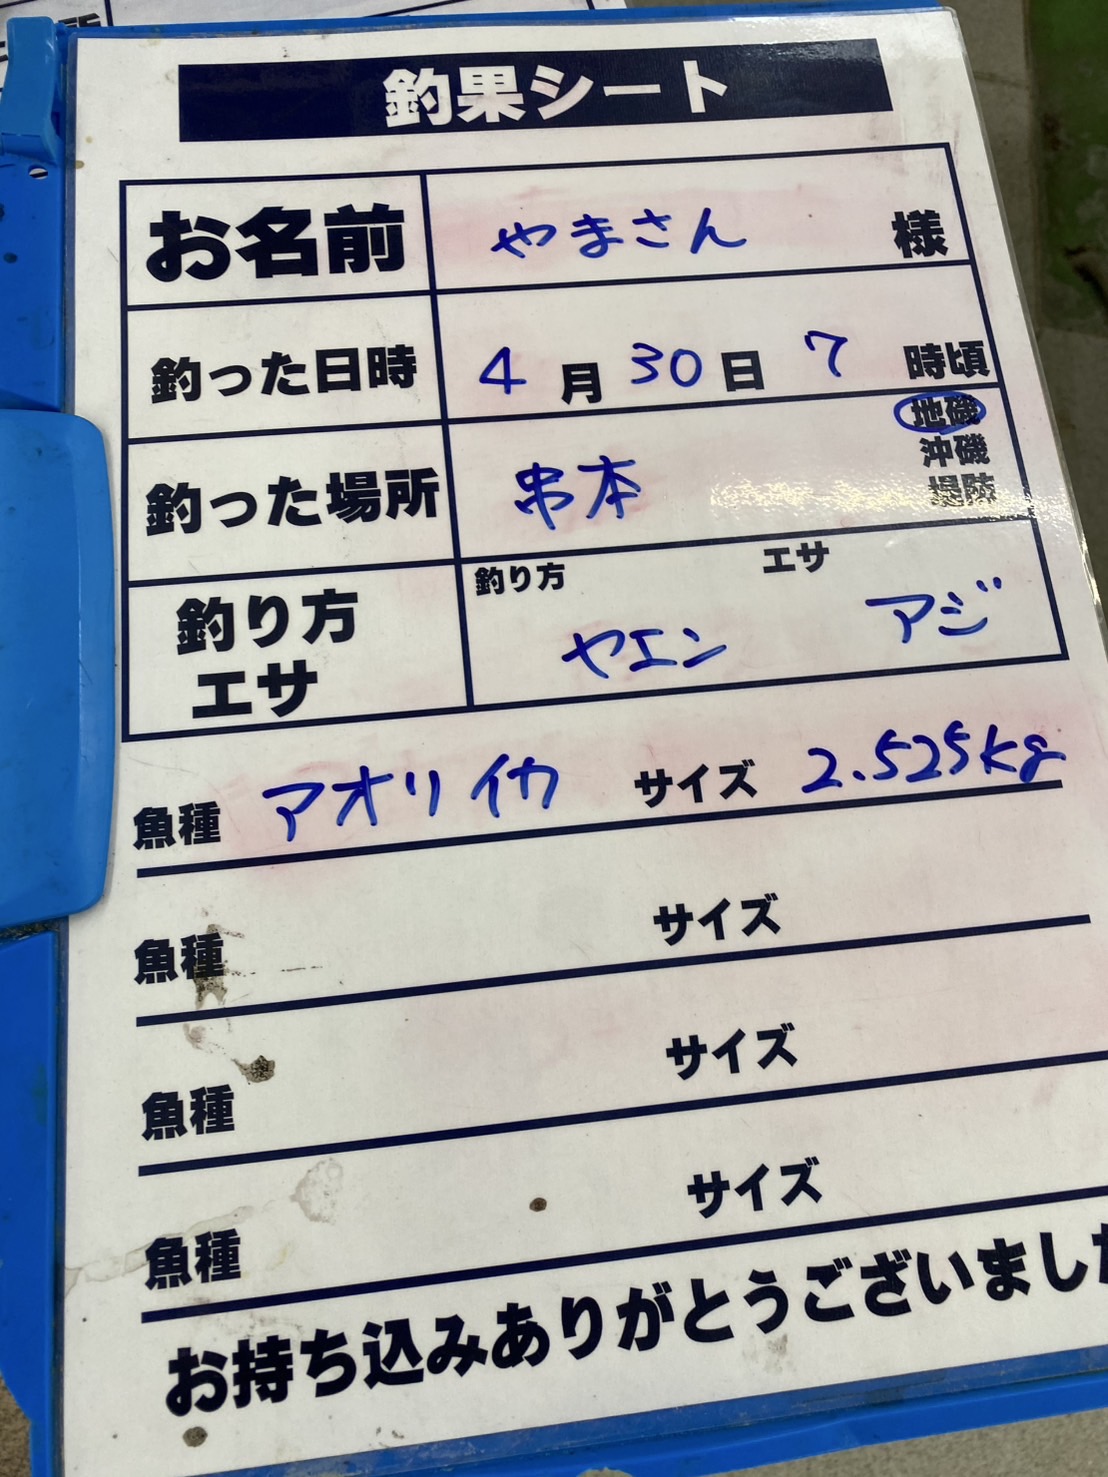 釣果シート
お名前 やまさん 様
釣った日時 4月30日 7時頃
釣った場所 串本 地磯
沖磯
堤防
釣り方 エサ
釣り方 ヤエン
エサ アジ
魚種 アオリイカ サイズ 2.525kg
魚種 サイズ
魚種 サイズ
魚種 サイズ
お持ち込みありがとうございました